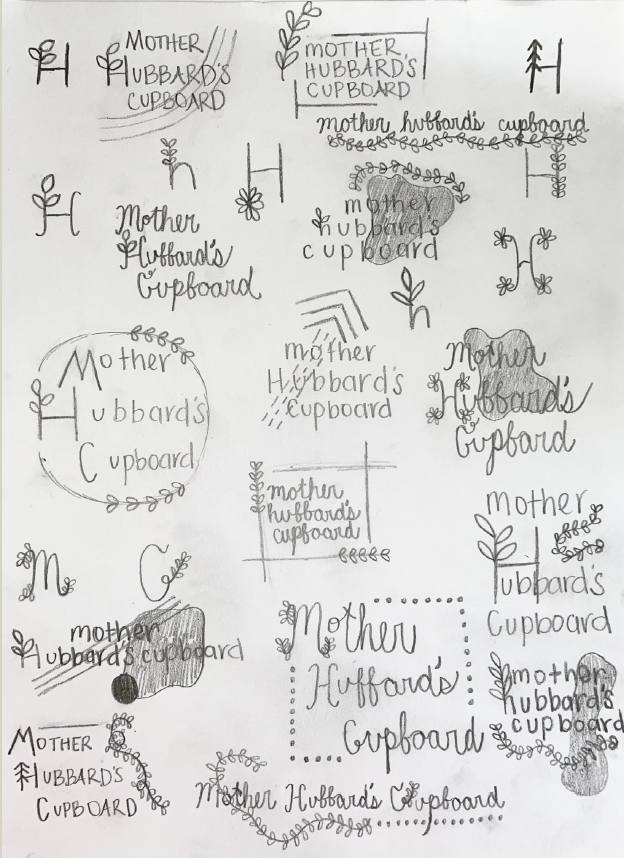 H
MOTHER
HUBBARD'S
CUPBOARD
MOTHER
HUBBARD'S
CUPBOARD
H
mother hubbard's cupboard
h
H
H
H
Mother
Hubbard's
Cupboard
mother
hubbard's
cupboard
H
h
Mother
Hubbard's
Cupboard
mother
Hubbard's
Cupboard
Mother
Hubbard's
Cupboard
mother
hubbard's
cupboard
mother
Hubbard's
Cupboard
M
C
mother
Hubbard's cupboard
Mother
Hubbard's
Cupboard
mother
hubbard's
cupboard
MOTHER
HUBBARD'S
CUPBOARD
Mother Hubbard's Cupboard